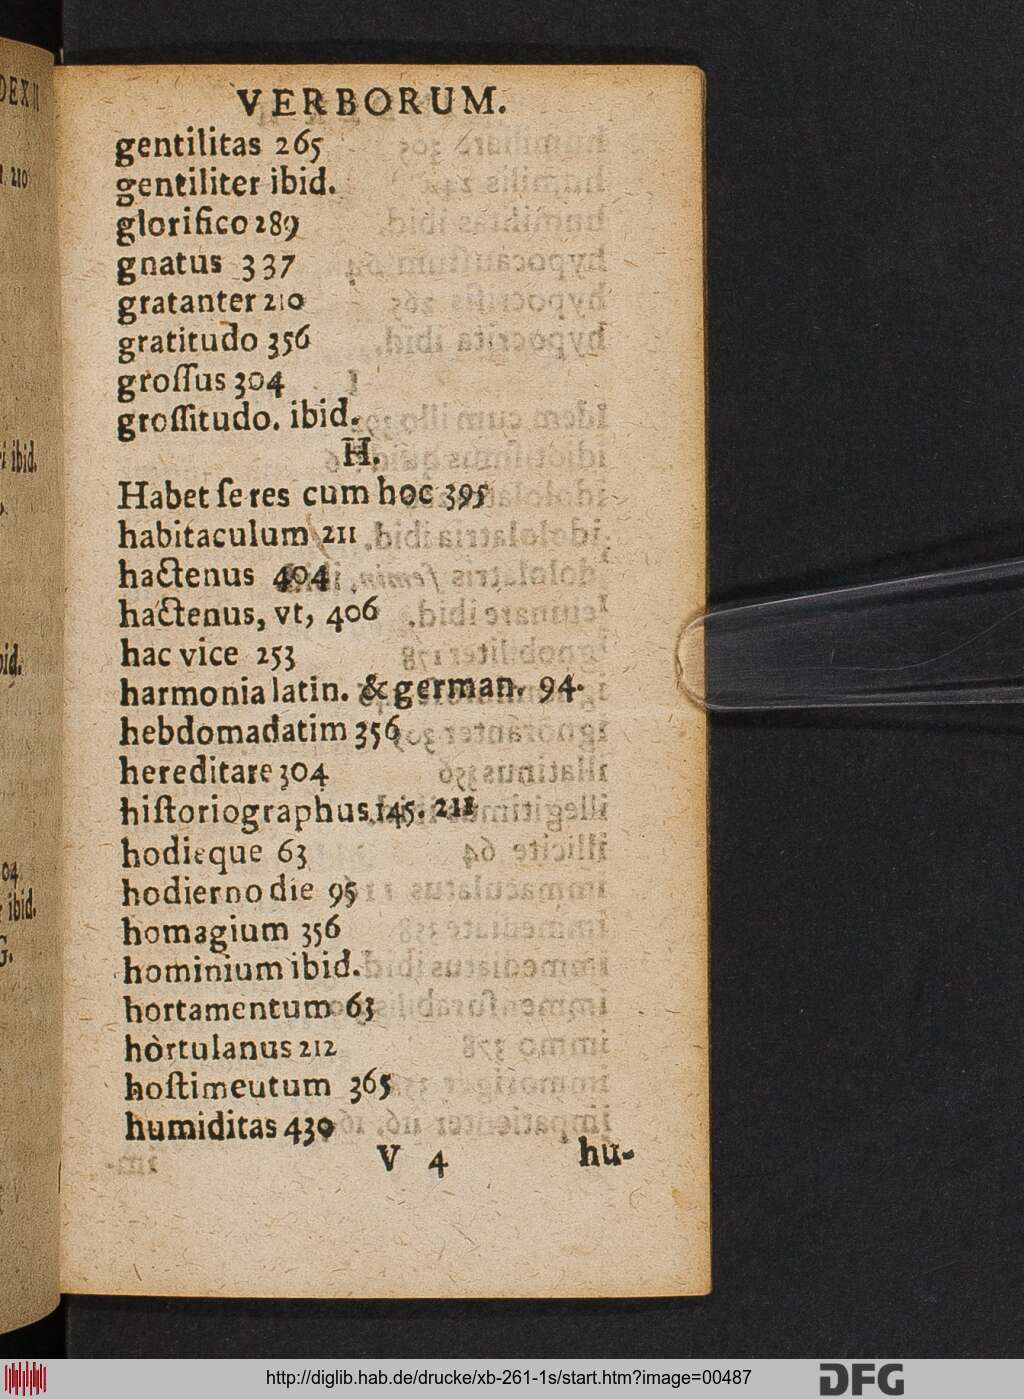 VERBORUM.
gentilitas 265
gentiliter ibid.
glorifico 289
gnatus 337
gratanter 210
gratitudo 356
groſſus 304
groſſitudo. ibid.
H.
Habet ſe res cum hoc 395
habitaculum 211
hactenus 404
hactenus, vt, 406
hac vice 253
harmonia latin. & german. 94.
hebdomadatim 356
hereditare 304
hiſtoriographus 145. 211
hodieque 63
hodierno die 95
homagium 356
hominium ibid.
hortamentum 63
hòrtulanus 212
hoſtimeutum 365
humiditas 430
V 4 hu-
DEX
210
ibid.
ibid.
04
ibid.
G.
http://diglib.hab.de/drucke/xb-261-1s/start.htm?image=00487
DFG